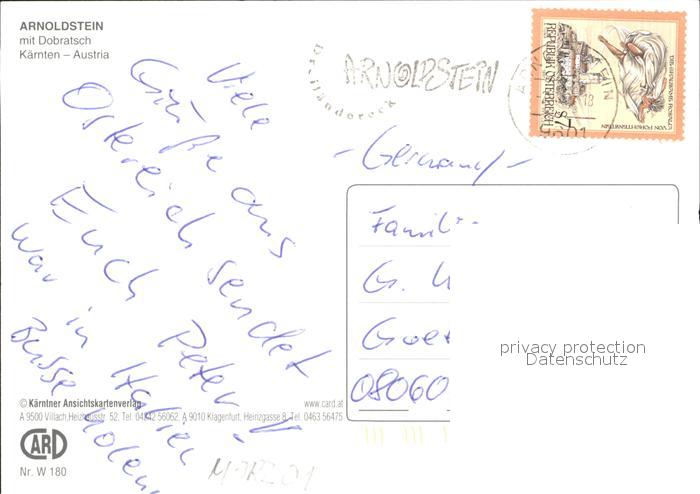 ARNOLDSTEIN
mit Dobratsch
Kärnten – Austria
Viele
Grüße aus
Österreich sendet
Euch Peter!
War in Italien
Busse holen
Dreiländereck
ARNOLDSTEIN
REPUBLIK ÖSTERREICH
- Germany -
Famil
Gr.
08060
privacy protection
Datenschutz
© Kärntner Ansichtskartenverlag www.card.at
A 9500 Villach, Heizhausstr. 52, Tel. 04242 56062, A 9010 Klagenfurt, Heinzgasse 8, Tel. 0463 56475
CARD
Nr. W 180
MÄRZ 01